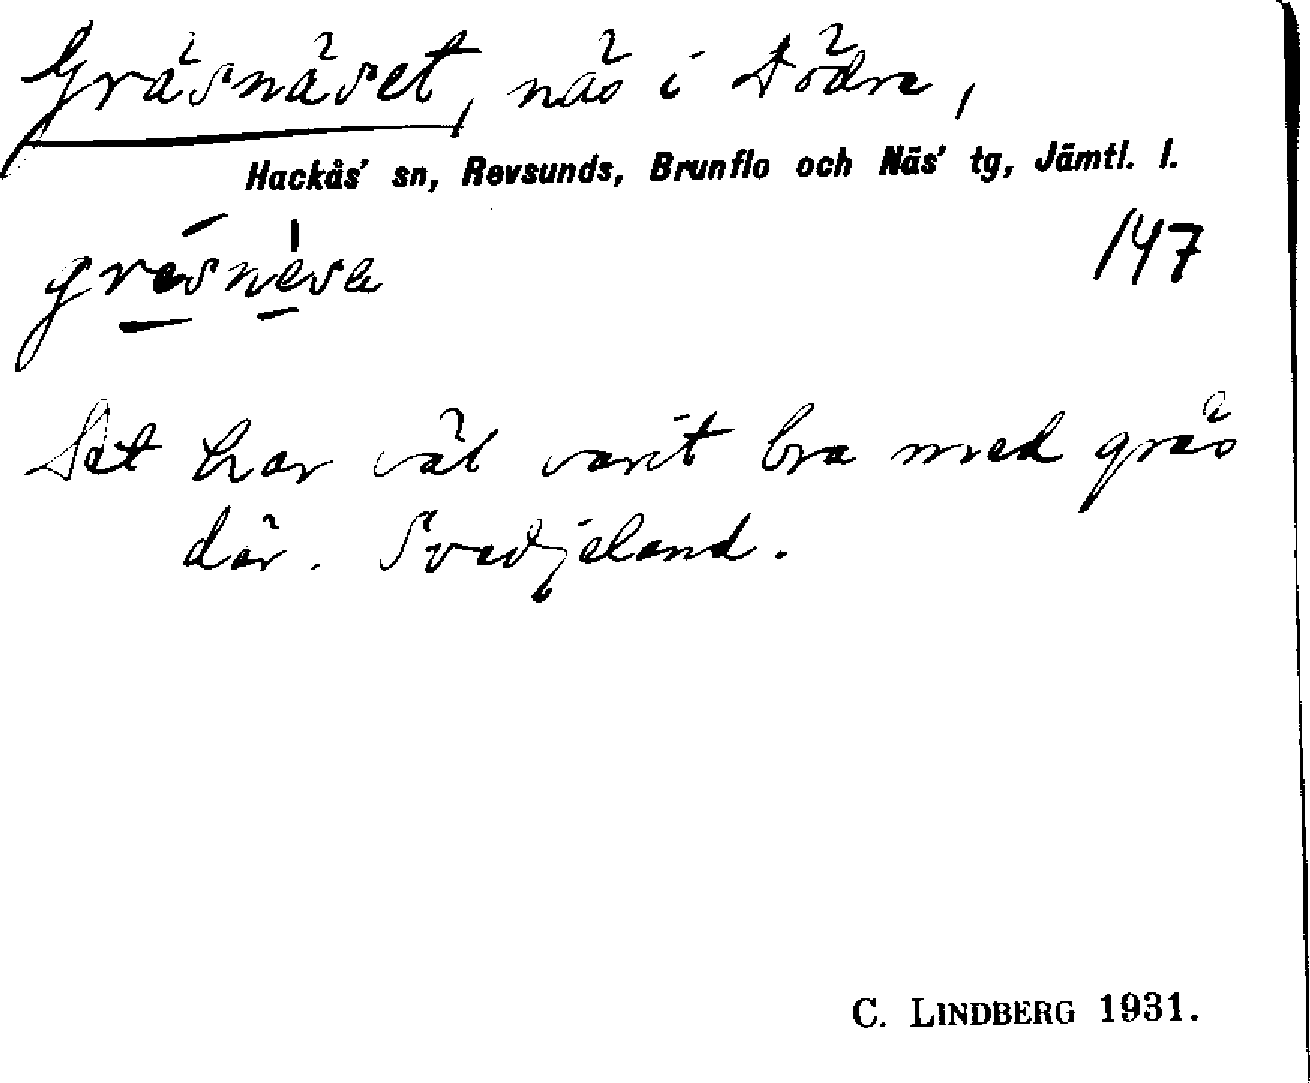 Gräsnäset, näs i Dödre,
Hackås' sn, Revsunds, Brunflo och Näs' tg, Jämtl. l.
147
Det har väl varit bra med gräs
där. Svedjeland.
C. LINDBERG 1931.